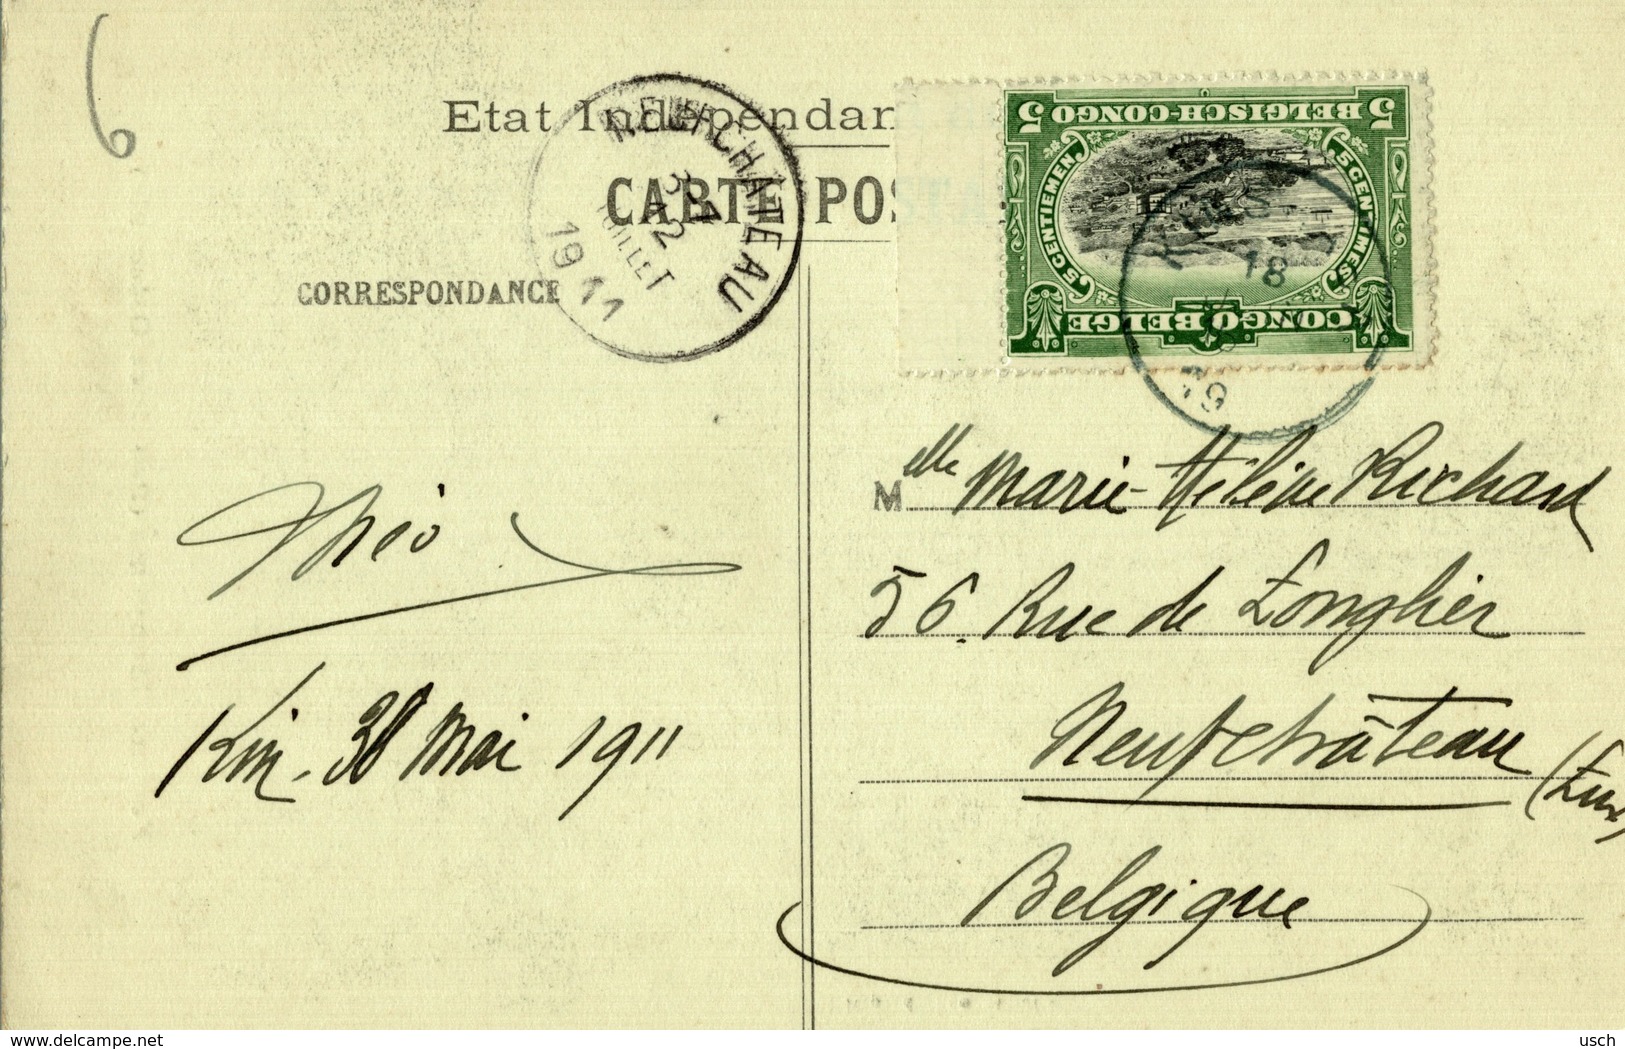 6
Etat Indépendan
CARTE POS
CORRESPONDANCE
NEUFCHATEAU
3-4
12
JUILLET
1911
BELGISCH-CONGO
5 5
5 CENTIEMEN
5 CENTIMES
CONGO BELGE
18
19
Théo
Kin. 30 Mai 1911
Melle Marie-Hélène Richard
56. Rue de Longlier
Neufchâteau
(Lux)
Belgique
delcampe.net
usch